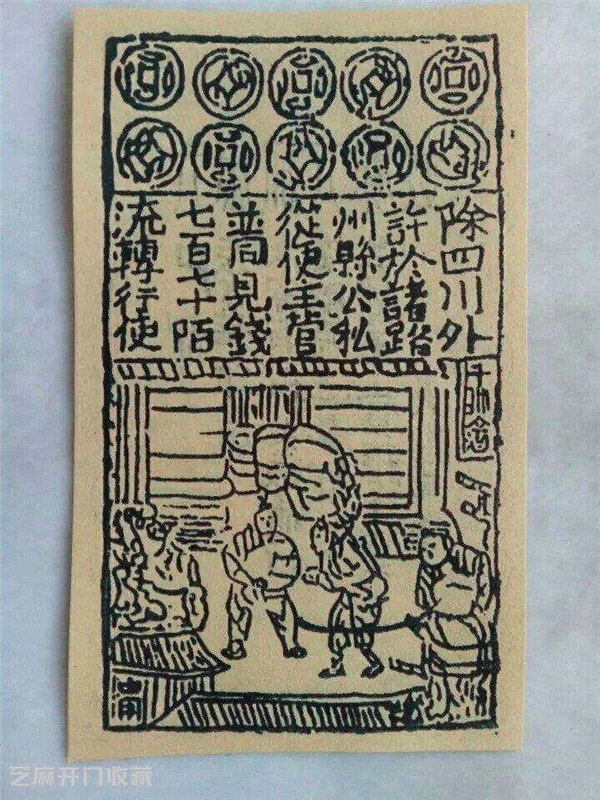 除四川外
許於諸路
州縣公私
從便主管
並同見錢
七百七十陌
流轉行使
芝麻开门收藏